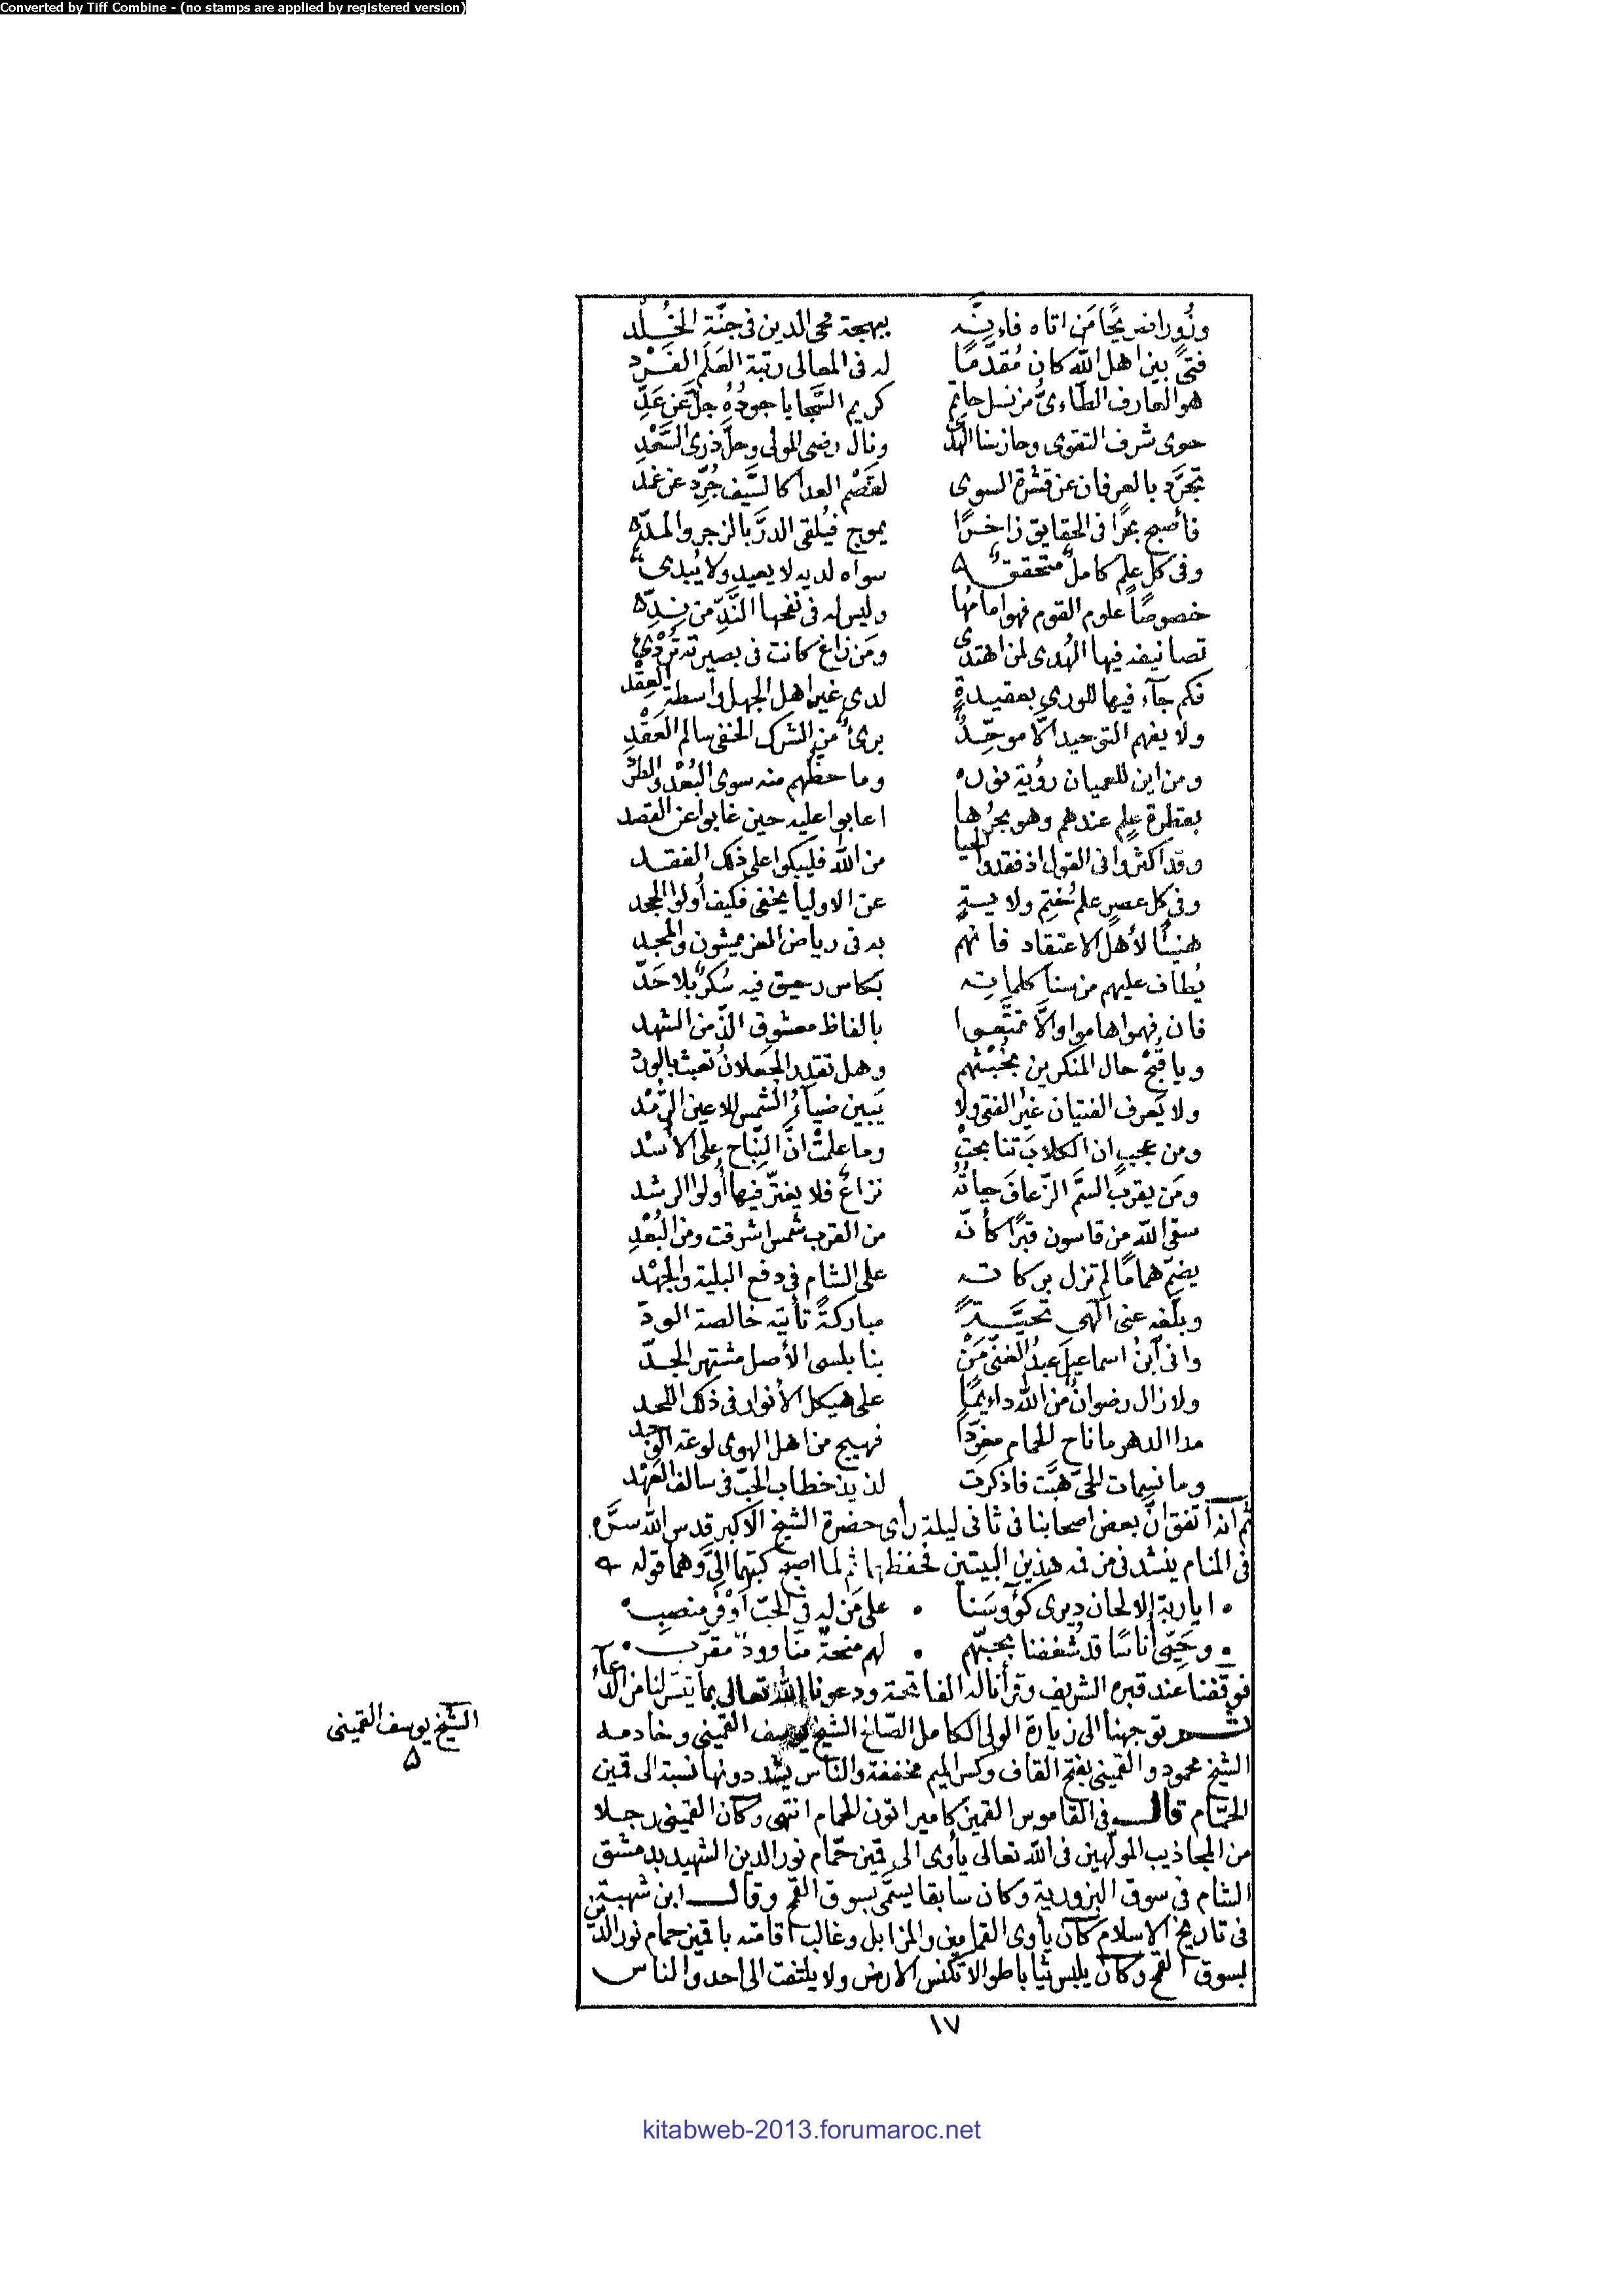 Converted by Tiff Combine - (no stamps are applied by registered version)
بهجة محى الدين فى جنَّة الخُلد
فتىً بين اهل الله كان مُقدَّمًا له فى المعالى رتبة العَلَم الفَرْد
هو العارف الطاءىُّ من نسل حاتم كريم السَّجايا جودُهُ جلَّ عن عَدِّ
حوى شرف التقوى وحاز سنا الهدى ونال رضى المولى وحلَّ ذرى السَّعْدِ
تجرَّد بالعرفان عن قشرة السوى لقَصْم العدا كالسَّيف جُرِّد عن غمد
فأصبح بحرًا فى الحقايق زاخرًا يموج فيُلقى الدرَّ بالزجر والمدّ
وفى كل علم كامل متحقق سواه لديه لا يعيد ولا يُبدى
خصوصًا علوم القوم فهو امامُها وليس له فى نفحها النَّدِّ من نِدِّ
تصانيفه فيها الهُدى لمن اهتدى ومَن زاغ كانت فى بصيرته تُرْدِى
فكم جآء فيها للورى بعقيدةٍ لدى غير اهل الجهل واسطة العِقْد
ولا يفهم التوحيد الّا موحِّدٌ برىءٌ من الشرك الخفى سالم العَقْدِ
ومن اين للعميان رؤية نوره وما حظهم منه سوى البُعْد والطرْد
بقطرة علم عندهم وهو بحرُها اعابوا عليه حين غابوا عن القصد
وقد اكثروا فى القول اذ فقدوا الحيا من الله فليبكوا على ذلك الفقد
وفى كل عصر علم عن الاوليا يخفى فكيف أولوا الجحد
هنيئًا لأهل الاعتقاد فانهم به فى رياض العز يمشون والمجد
يُطاف عليهم من سنا كلماته بكاس رحيق فيه سُكرٌ بلا حَدّ
فان فهموا هاموا والَّا تمتَّعوا بالفاظ معشوق الذّ من الشهد
ويا قُبْحَ حال المنكرين بخُبْثهم وهل الجعلان تعبث بالورد
ولا يَعرف الفتيان غيرُ الفتى ولا يَبين ضياءُ الشمس للاعين الرُّمْد
ومن عجبٍ ان الكلاب تنابحتْ وما علمتْ انَّ النِّباح على الأسْد
ومَن يقرب السمَّ الزّعافَ حياتُه نزاعٌ فلا يغترّ فيها أولوا الرشد
سقى الله من قاسون قبرًا كأنّه من القرب شمس اشرقت ومن البُعْدِ
يضمّ همامًا لم تزل بركاته على الشام فى دفع البلية والجهْد
وبلّغه عنى الٓهى تحيَّةً مباركةً تأتيه خالصة الودّ
وانى ابن اسماعيل عبدُ الغنى مَنْ بنابلسى الأصل مشتهر الجدّ
ولا زال رضوانٌ من الله دايمًا على هيكل الأنوار فى ذلك اللحد
مدا الدهر ما ناح الحمام مغرّدًا فهيج من اهل الهوى لوعة الوَجد
وما نسمات الحىّ هبَّت فاذكرت لذيذ خطاب الحبّ فى سالف العَهْد
ثم انه اتفق انَّ بعض اصحابنا فى ثانى ليلة رأى حضرة الشيخ الاكبر قدس الله سرَّه
فى المنام ينشد فى من فمه هذين البيتين فحفظهما ثم لما اصبح كتبهما الىَّ وهما قوله
• ايا ربة الالحان ديرى كؤوسَنا • على مَن له فى الحبّ أوْفَر منصب •
• وحَيّى أُناسًا قد شُغفنا بحبّهم • لهم منحةٌ منّا وودٌ مقرّب •
فوقفنا عند قبره الشريف وقرأنا له الفاتحة ودعونا الله تعالى بما تيسّر لنا من الدعآء
ثم توجهنا الى زيارة الولى الكامل الصّالح الشيخ يوسف القمينى وخادمه
الشيخ محمود والقمينى بفتح القاف وكسر الميم مخففة والناس يشددونها نسبة الى قمين
الحمّام قال فى القاموس القمين كامير اتون الحمام انتهى وكان القمينى رجلا
من المجاذيب المولّهين فى الله تعالى يأوى الى قمين حمّام نور الدين الشهيد بدمشق
الشام فى سوق البزورية وكان سابقا يسمَّى بسوق القمح وقال ابن شهبة
فى تاريخ الاسلام كان يأوى القمامين والمزابل وغالب اقامته باقمين حمام نور الدين
بسوق القمح وكان يلبس ثيابا طوالا تكنس الارض ولا يلتفت الى احد والناس
الشيخ يوسف القمينى
٥
١٧
kitabweb-2013.forumaroc.net